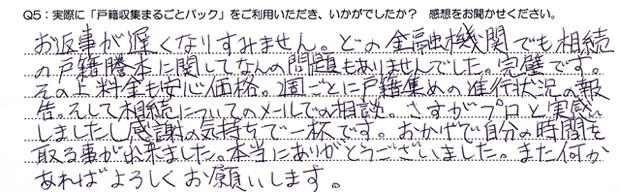 Q5：実際に「戸籍収集まるごとパック」をご利用いただき、いかがでしたか？　感想をお聞かせください。
お返事が遅くなりすみません。どの金融機関でも相続
の戸籍謄本に関してなんの問題もありませんでした。完璧です。
その上料金も安心価格。2週ごとに戸籍集めの進行状況の報
告。そして相続についてのメールでの相談。さすがプロと実感
しましたし感謝の気持ちで一杯です。おかげで自分の時間を
取る事が出来ました。本当にありがとうございました。また何か
あればよろしくお願いします。